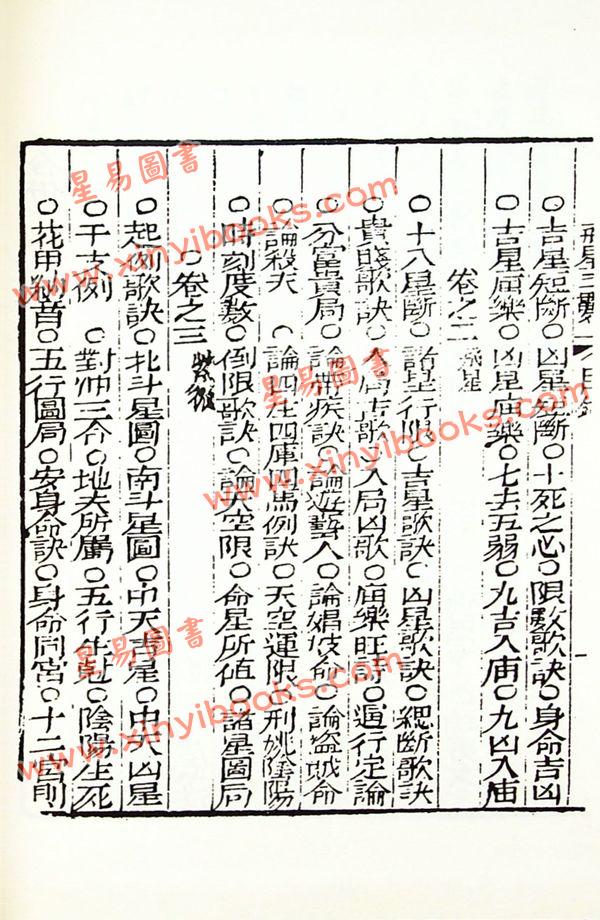 ○吉星短斷○凶星短斷○十死之心○限數歌訣○身命吉凶
○吉星庙樂○凶星庙樂○七去五弱○九吉入庙○九凶入庙
卷之二
○十八星斷○諸星行限○吉星歌訣○凶星歌訣○總斷歌訣
○貴賤歌訣○入局吉歌○入局凶歌○庙樂旺詩○遁行定論
○分富貴局○論病疾訣○論遊藝人○論娼妓命○論盜賊命
○論殺夭○論四生四庫四馬例訣○天空運限○刑姚陰陽
○時刻度數○倒限歌訣○論天空限○命星所值○諸星圖局
○卷之三 紫微
○起例歌訣○北斗星圖○南斗星圖○中天吉星○中天凶星
○干支例○對冲三合○地支所屬○五行生尅○陰陽生死
○花甲納音○五行圖局○安身命訣○身命同宮○十二宮則
星易圖書
www.xinyibooks.com
星易圖書
www.xinyibooks.com
星易圖書
www.xinyibooks.com